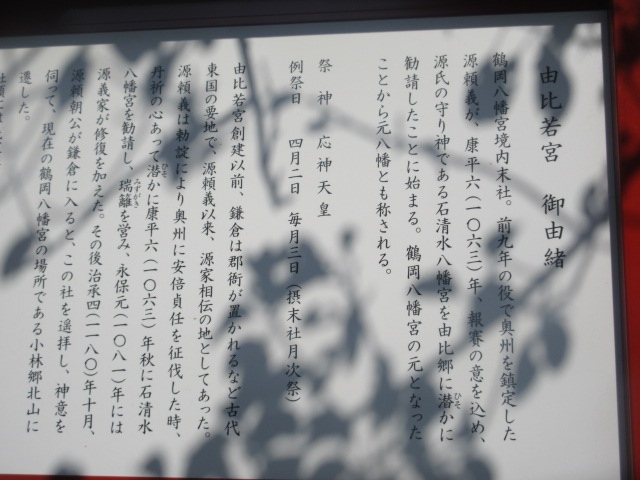 由比若宮 御由緒
鶴岡八幡宮境内末社。前九年の役で奥州を鎮定した
源頼義が、康平六(一〇六三)年、報賽の意を込め、
源氏の守り神である石清水八幡宮を由比郷に潜かに
ひそ
勧請したことに始まる。鶴岡八幡宮の元となった
ことから元八幡とも称される。
祭神 応神天皇
例祭日 四月二日 毎月三日(摂末社月次祭)
由比若宮創建以前、鎌倉は郡衙が置かれるなど古代
東国の要地で、源頼義以来、源家相伝の地としてあった。
源頼義は勅諚により奥州に安倍貞任を征伐した時、
丹祈の心あって潜かに康平六(一〇六三)年秋に石清水
ひそ
八幡宮を勧請し、瑞籬を営み、永保元(一〇八一)年には
みずがき
源義家が修復を加えた。その後治承四(一一八〇)年十月、
源頼朝公が鎌倉に入ると、この社を遥拝し、神意を
伺って、現在の鶴岡八幡宮の場所である小林郷北山に
遷した。